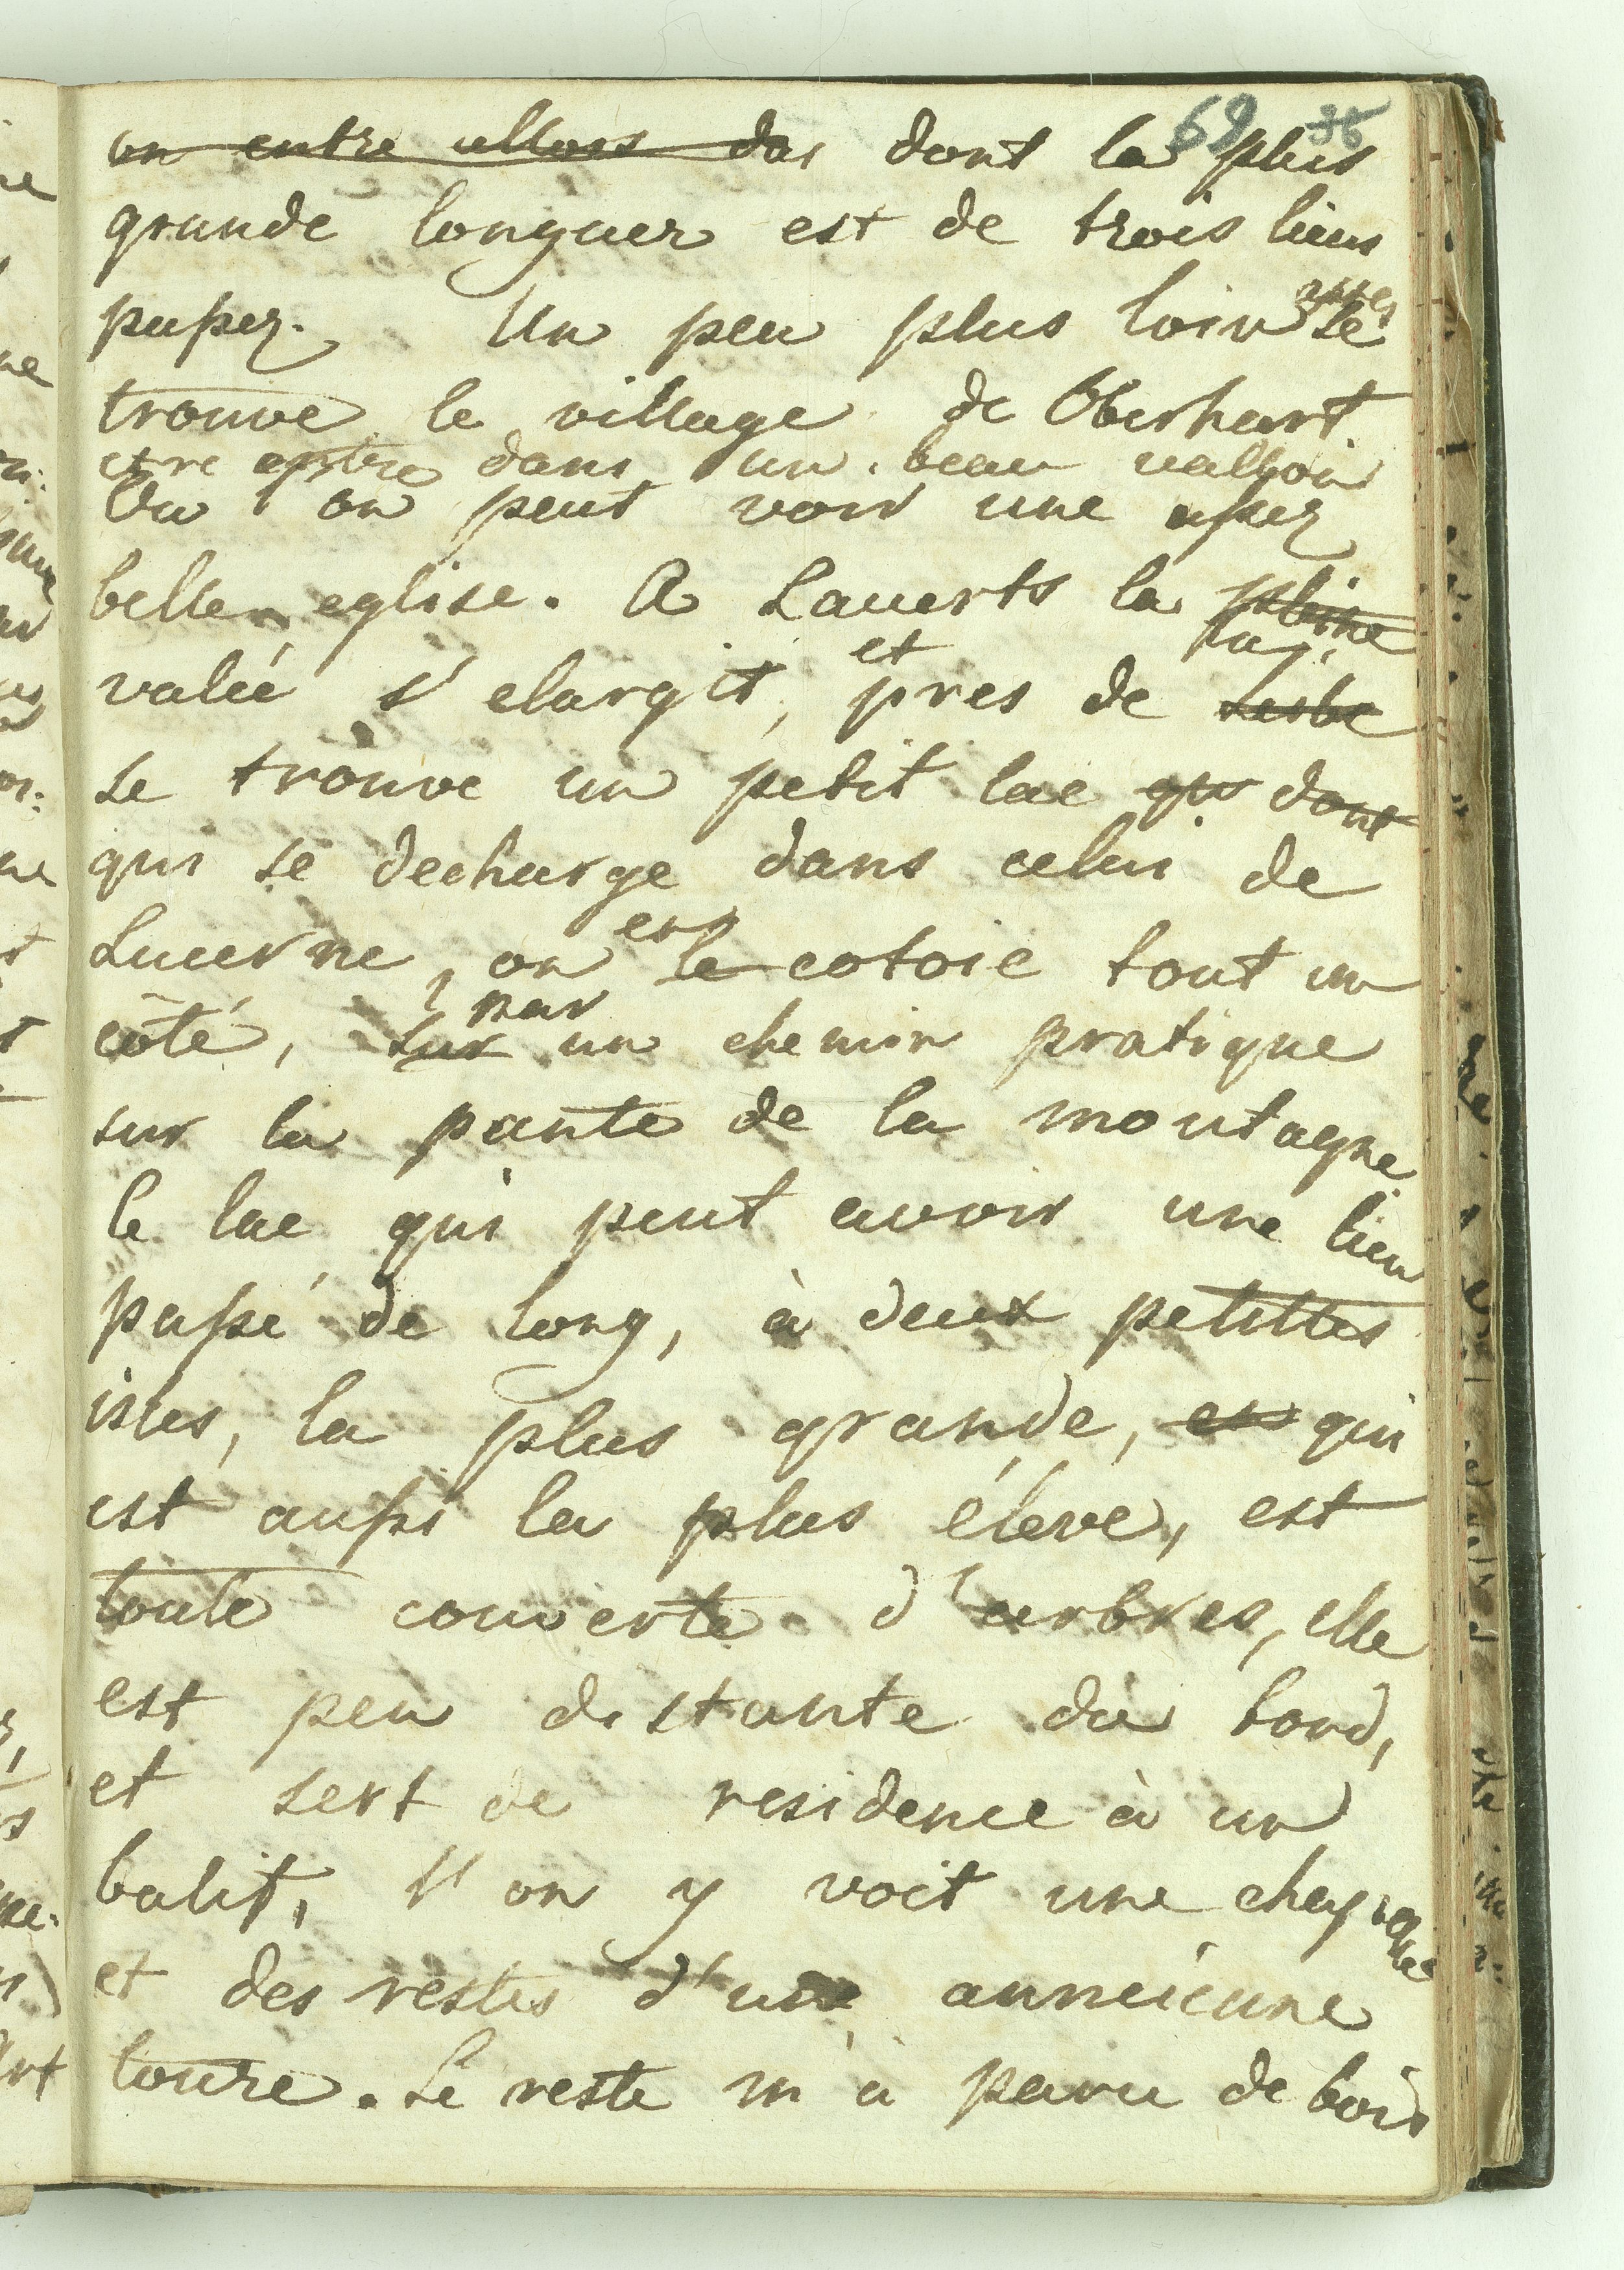 69 38
~~on entre allors~~ das dont la plus
grande longuer est de trois lieus
passez. Un peu plus loin se
trouve le village de Oberhart.
dans un beau vallon
Ou l'on peut voir une assez
belle eglise. A Lauerts la ~~pleine~~
valée s'elargit, et pres de
se trouve un petit lac ~~qu~~ ~~dont~~
qui se decharge dans celui de
Lucerne, on en ~~le~~ cotoie tout un
côté, ~~sur~~ par un chemin pratique
sur la pante de la montagne
le lac qui peut avoir une lieu
passé de long, à deux petittes
isles, la plus grande, ~~en~~ qui
est aussi la plus éleve, est
toute couverte d'arbres, elle
est peu distante du bord,
et sert de residence à un
l'on y voit une
et des restes d'une anneicune
toure. Le reste m'a paru de bois